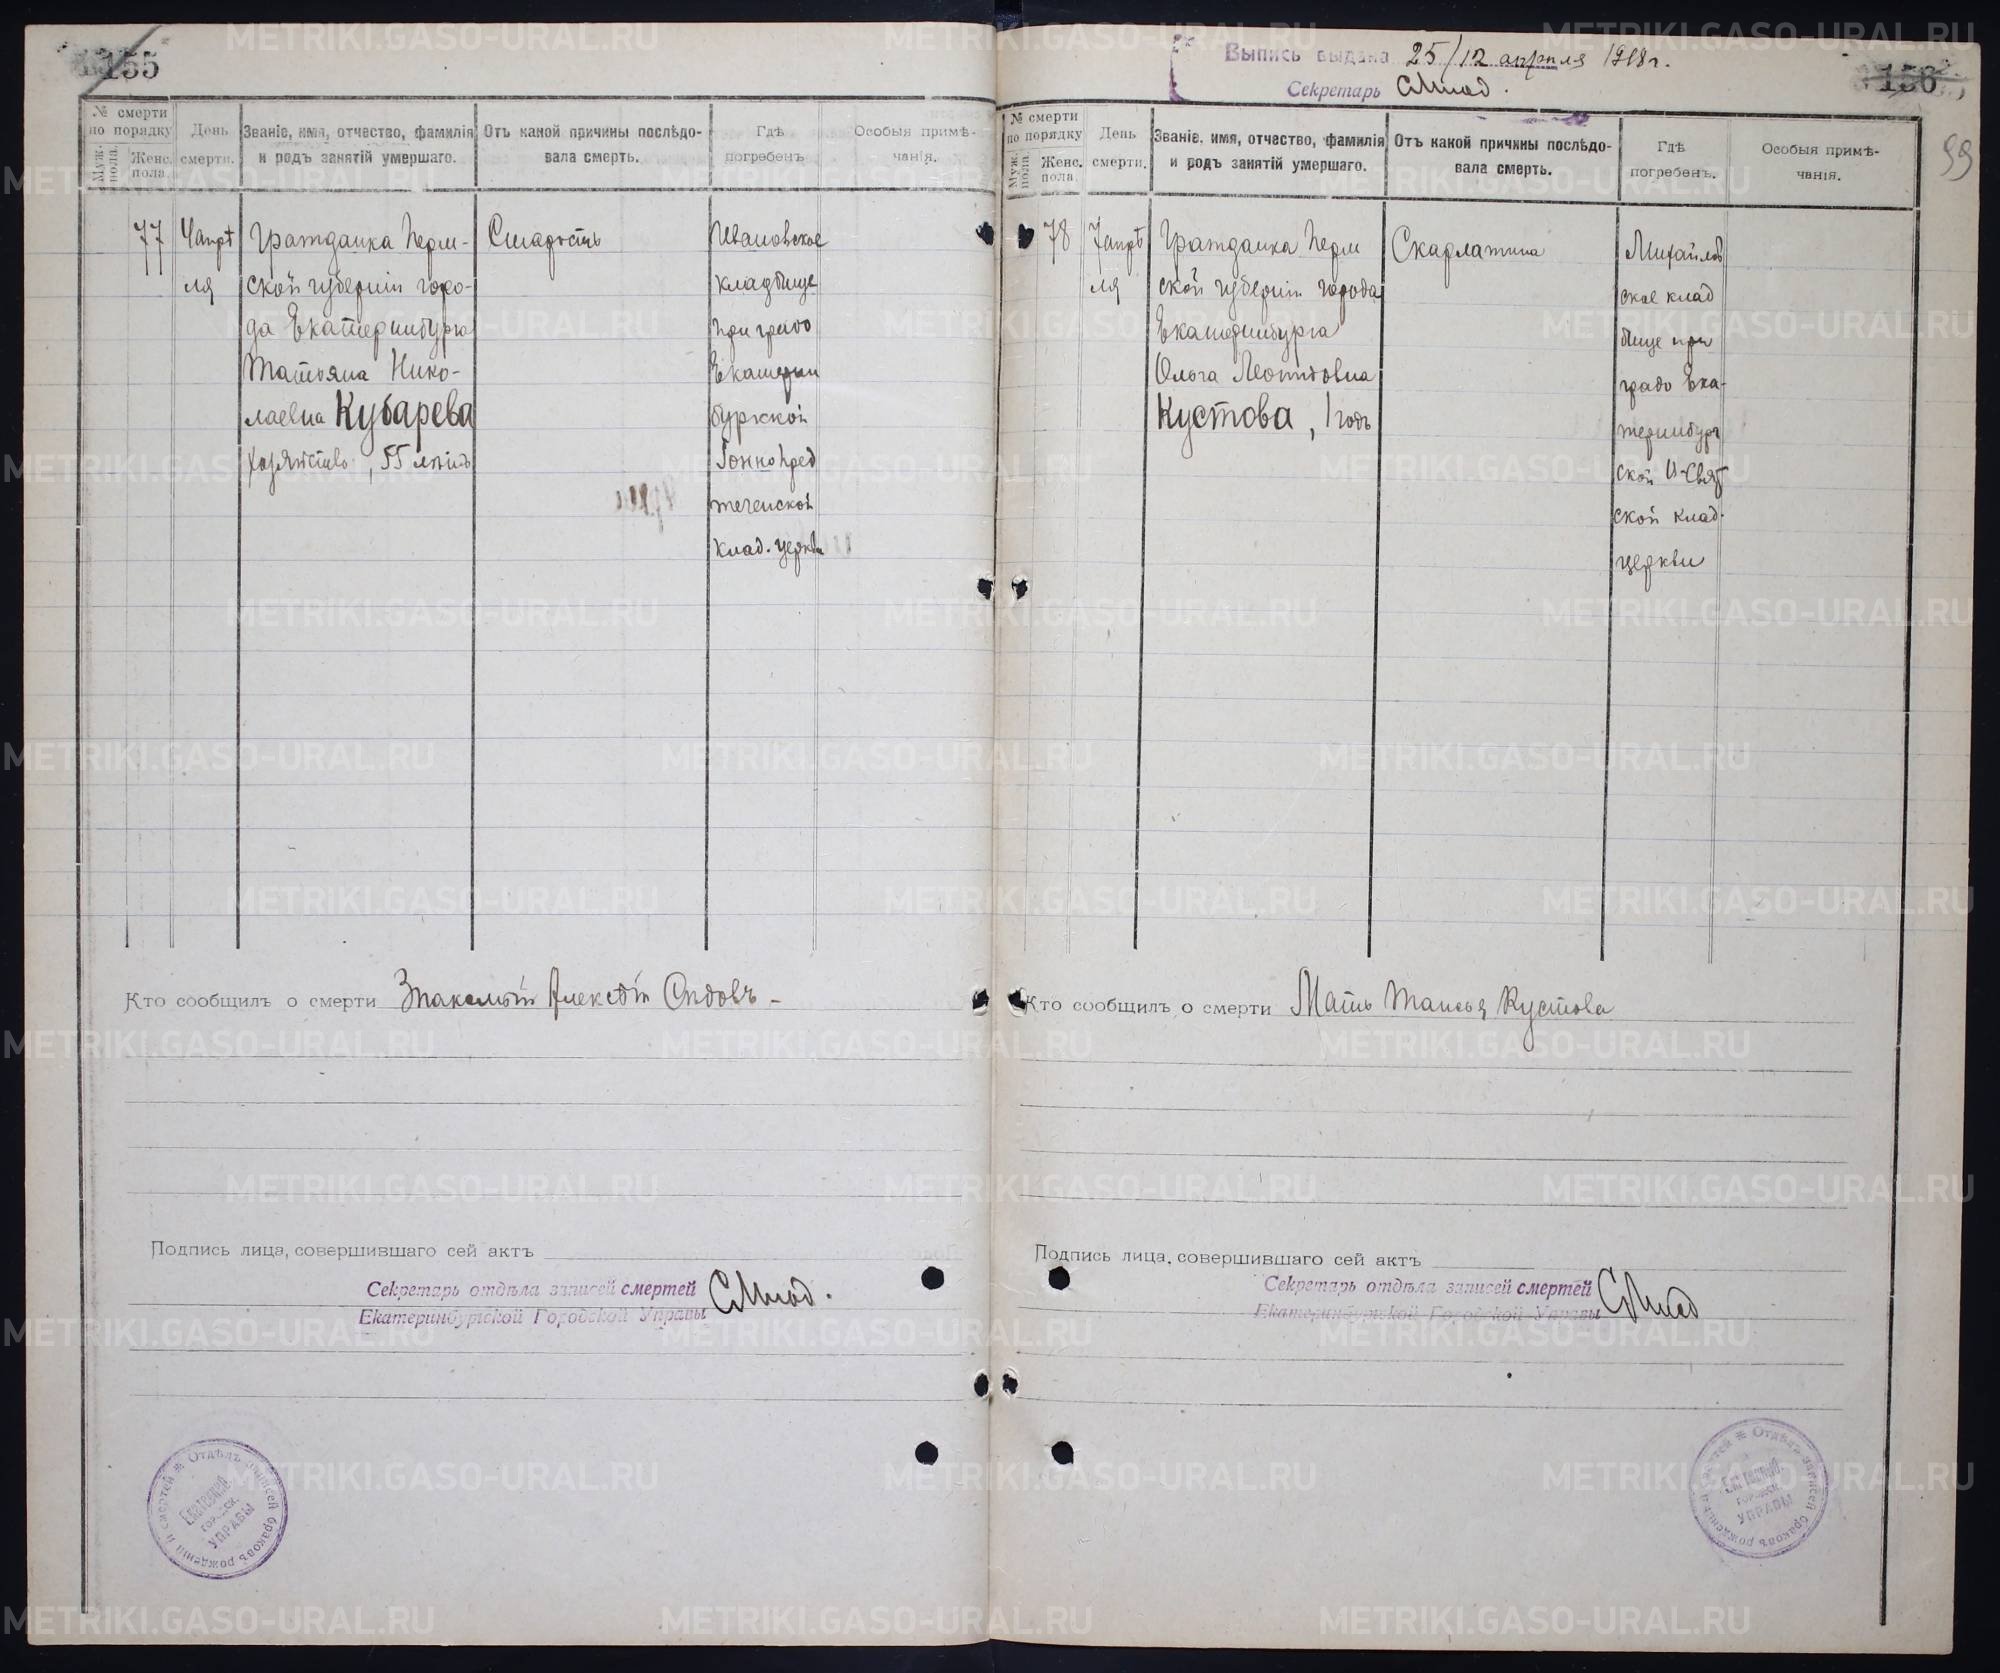 155
№ смерти
по порядку
Муж.
пола.
Женс.
пола.
День
смерти.
Званіе, имя, отчество, фамилія
и родъ занятій умершаго.
Отъ какой причины послѣдо-
вала смерть.
Гдѣ
погребенъ
Особыя примѣ-
чанія.
77
4 апрѣ
ля
Гражданка Перм-
ской губерніи горо-
да Екатеринбурга
Татьяна Нико-
лаевна Кубарева
хозяйство, 55 лѣтъ
Старость
Ивановское
кладбище
при градо
Екатерин
бургской
Іоанно Пред
теченской
клад. церкви
Кто сообщилъ о смерти Знакомый Алексѣй
Подпись лица, совершившаго сей актъ
Секретарь отдѣла записей смертей
Екатеринбургской Городской Управы
Отдѣлъ записей браковъ рожденій и смертей
Екатеринб.
городск.
УПРАВЫ
Выпись выдана 25/12 апрѣля 1918 г.
Секретарь
156
99
№ смерти
по порядку
Муж.
пола.
Женс.
пола.
День
смерти.
Званіе, имя, отчество, фамилія
и родъ занятій умершаго.
Отъ какой причины послѣдо-
вала смерть.
Гдѣ
погребенъ.
Особыя примѣ-
чанія.
78
7 апрѣ
ля
Гражданка Перм
ской губерніи города
Екатеринбурга
Ольга Леонидовна
Кустова, 1 годъ
Скарлатина
Михайлов
ское клад
бище при
градо Ека-
теринбург
ской
ской клад.
церкви
Кто сообщилъ о смерти Мать Таисья Кустова
Подпись лица, совершившаго сей актъ
Секретарь отдѣла записей смертей
Екатеринбургской Городской Управы
Отдѣлъ записей браковъ рожденій и смертей
Екатеринб.
городск.
УПРАВЫ
METRIKI.GASO-URAL.RU